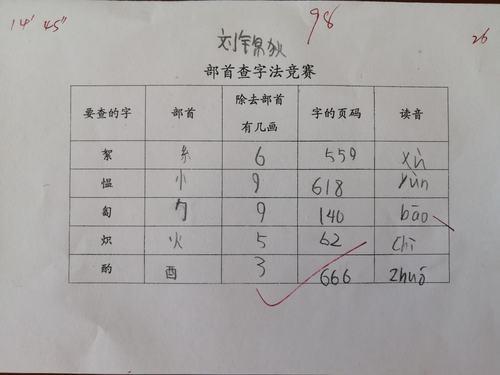 14' 45"
98
26
刘锦狄
部首查字法竞赛
要查的字 部首 除去部首有几画 字的页码 读音
絮 糸 6 559 xù
愠 忄 9 618 yùn
匐 勹 9 140 bāo
炽 火 5 62 chī
酌 酉 3 666 zhuó